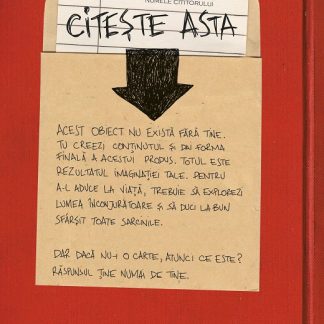 NUMELE CITITORULUI
CITEȘTE ASTA
ACEST OBIECT NU EXISTĂ FĂRĂ TINE.
TU CREEZI CONȚINUTUL ȘI DAI FORMA
FINALĂ A ACESTUI PRODUS. TOTUL ESTE
REZULTATUL IMAGINAȚIEI TALE. PENTRU
A-L ADUCE LA VIAȚĂ, TREBUIE SĂ EXPLOREZI
LUMEA ÎNCONJURĂTOARE ȘI SĂ DUCI LA BUN
SFÂRȘIT TOATE SARCINILE.
DAR DACĂ NU-I O CARTE, ATUNCI CE ESTE?
RĂSPUNSUL ȚINE NUMAI DE TINE.